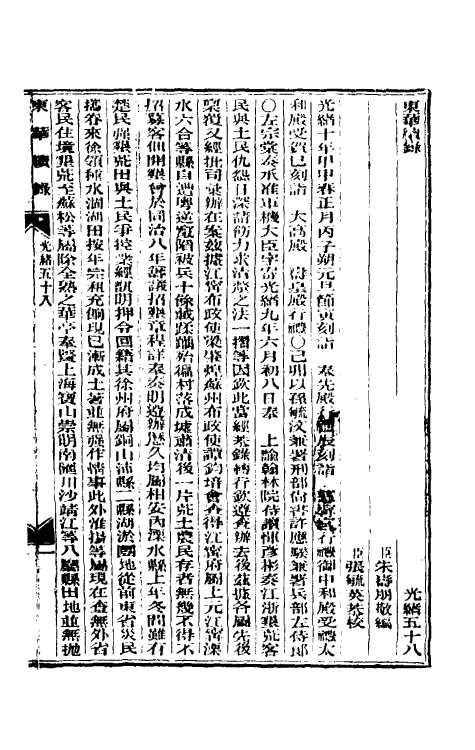 東華續錄
光緒五十八
臣朱壽朋敬編
臣張毓英恭校
光緒十年甲申春正月丙子朔元旦節寅刻詣　奉先殿行禮辰刻詣　行禮御中和殿受禮太
和殿受賀巳刻詣　大高殿　壽皇殿行禮〇己卯以孫毓汶兼署刑部尚書許應騤兼署兵部左侍郎
〇左宗棠奏承准軍機大臣字寄光緒九年六月初八日奉　上諭翰林院侍講惲彥彬奏江浙墾荒客
民與土民仇怨日深請飭力求清釐之法一摺等因欽此當經恭錄轉行欽遵查辦去後茲據各屬先後
稟覆又經批司彙辦在案茲據江甯布政使梁肇煌蘇州布政使譚鈞培會查得江甯府屬上元江甯溧
水六合等縣自遭粵逆竄陷被兵十餘載蹂躪殆徧村落成墟肅清後一片荒土農民存者無幾不得不
招募客佃開墾會於同治八年籌議招墾章程詳奉奏明遵辦歷久均屬相安內溧水縣上年冬間雖有
楚民強墾荒田與土民爭控業經訊明押令回籍其徐州府屬銅山沛縣二縣湖淤團地從前東省災民
攜眷來徐領種水涸湖田按年完租充餉現已漸成土著並無強作情事此外淮揚等屬現在查無外省
客民住境墾荒至蘇松等屬除全熟之華亭奉賢上海寶山崇明南匯川沙靖江等八廳縣田地並無拋
東華續錄
光緒五十八